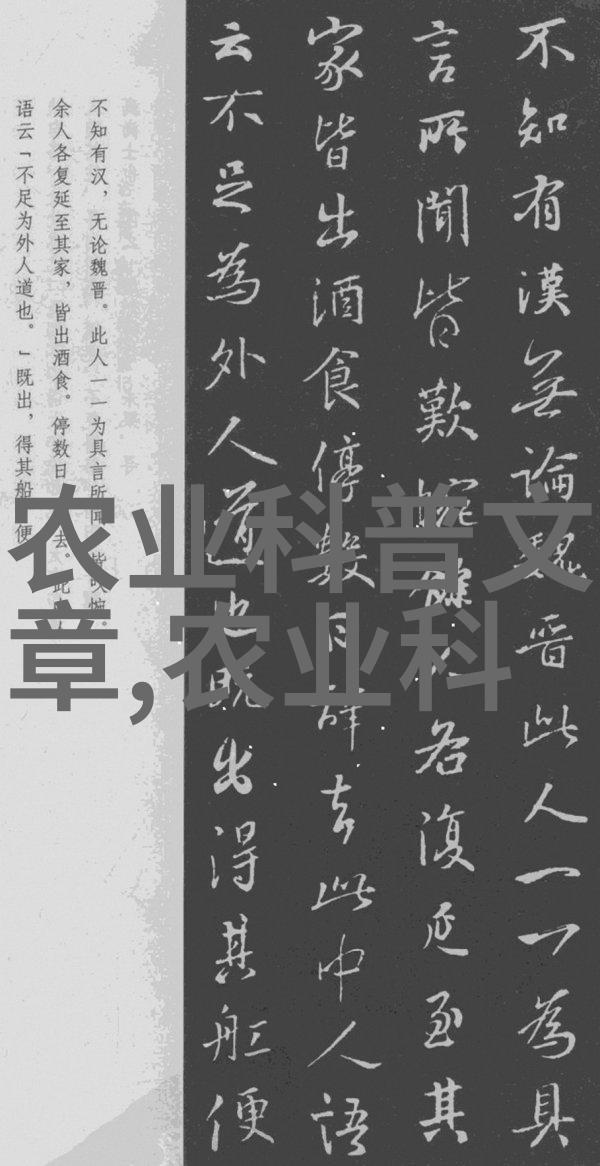 不知有漢無論魏晋此人一一為具
言所聞皆歎惋餘人各復延至其
家皆出酒食停數日辞去此中人語
云不足為外人道也既出得其船便
不知有汉，无论魏晋。此人一一为具言所闻，皆叹惋。
余人各复延至其家，皆出酒食。停数日，辞去。此中人
语云「不足为外人道也。」既出，得其船，便
农业科普文
章,农业科